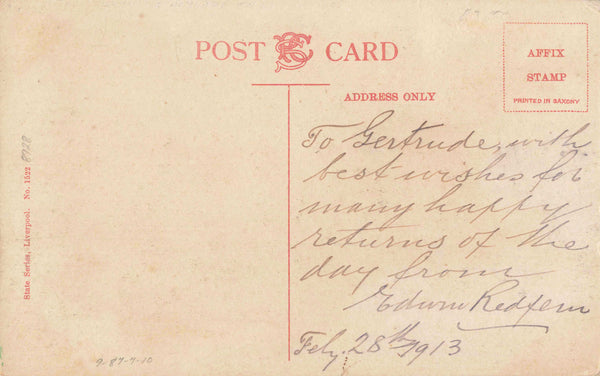 POST CARD
AFFIX
STAMP
PRINTED IN SAXONY
ADDRESS ONLY
To Gertrude, with
best wishes for
many happy
returns of the
day from
Edwin Redfern
Feby. 28th 1913
State Series, Liverpool. No. 1522
8928
9-87-7-10